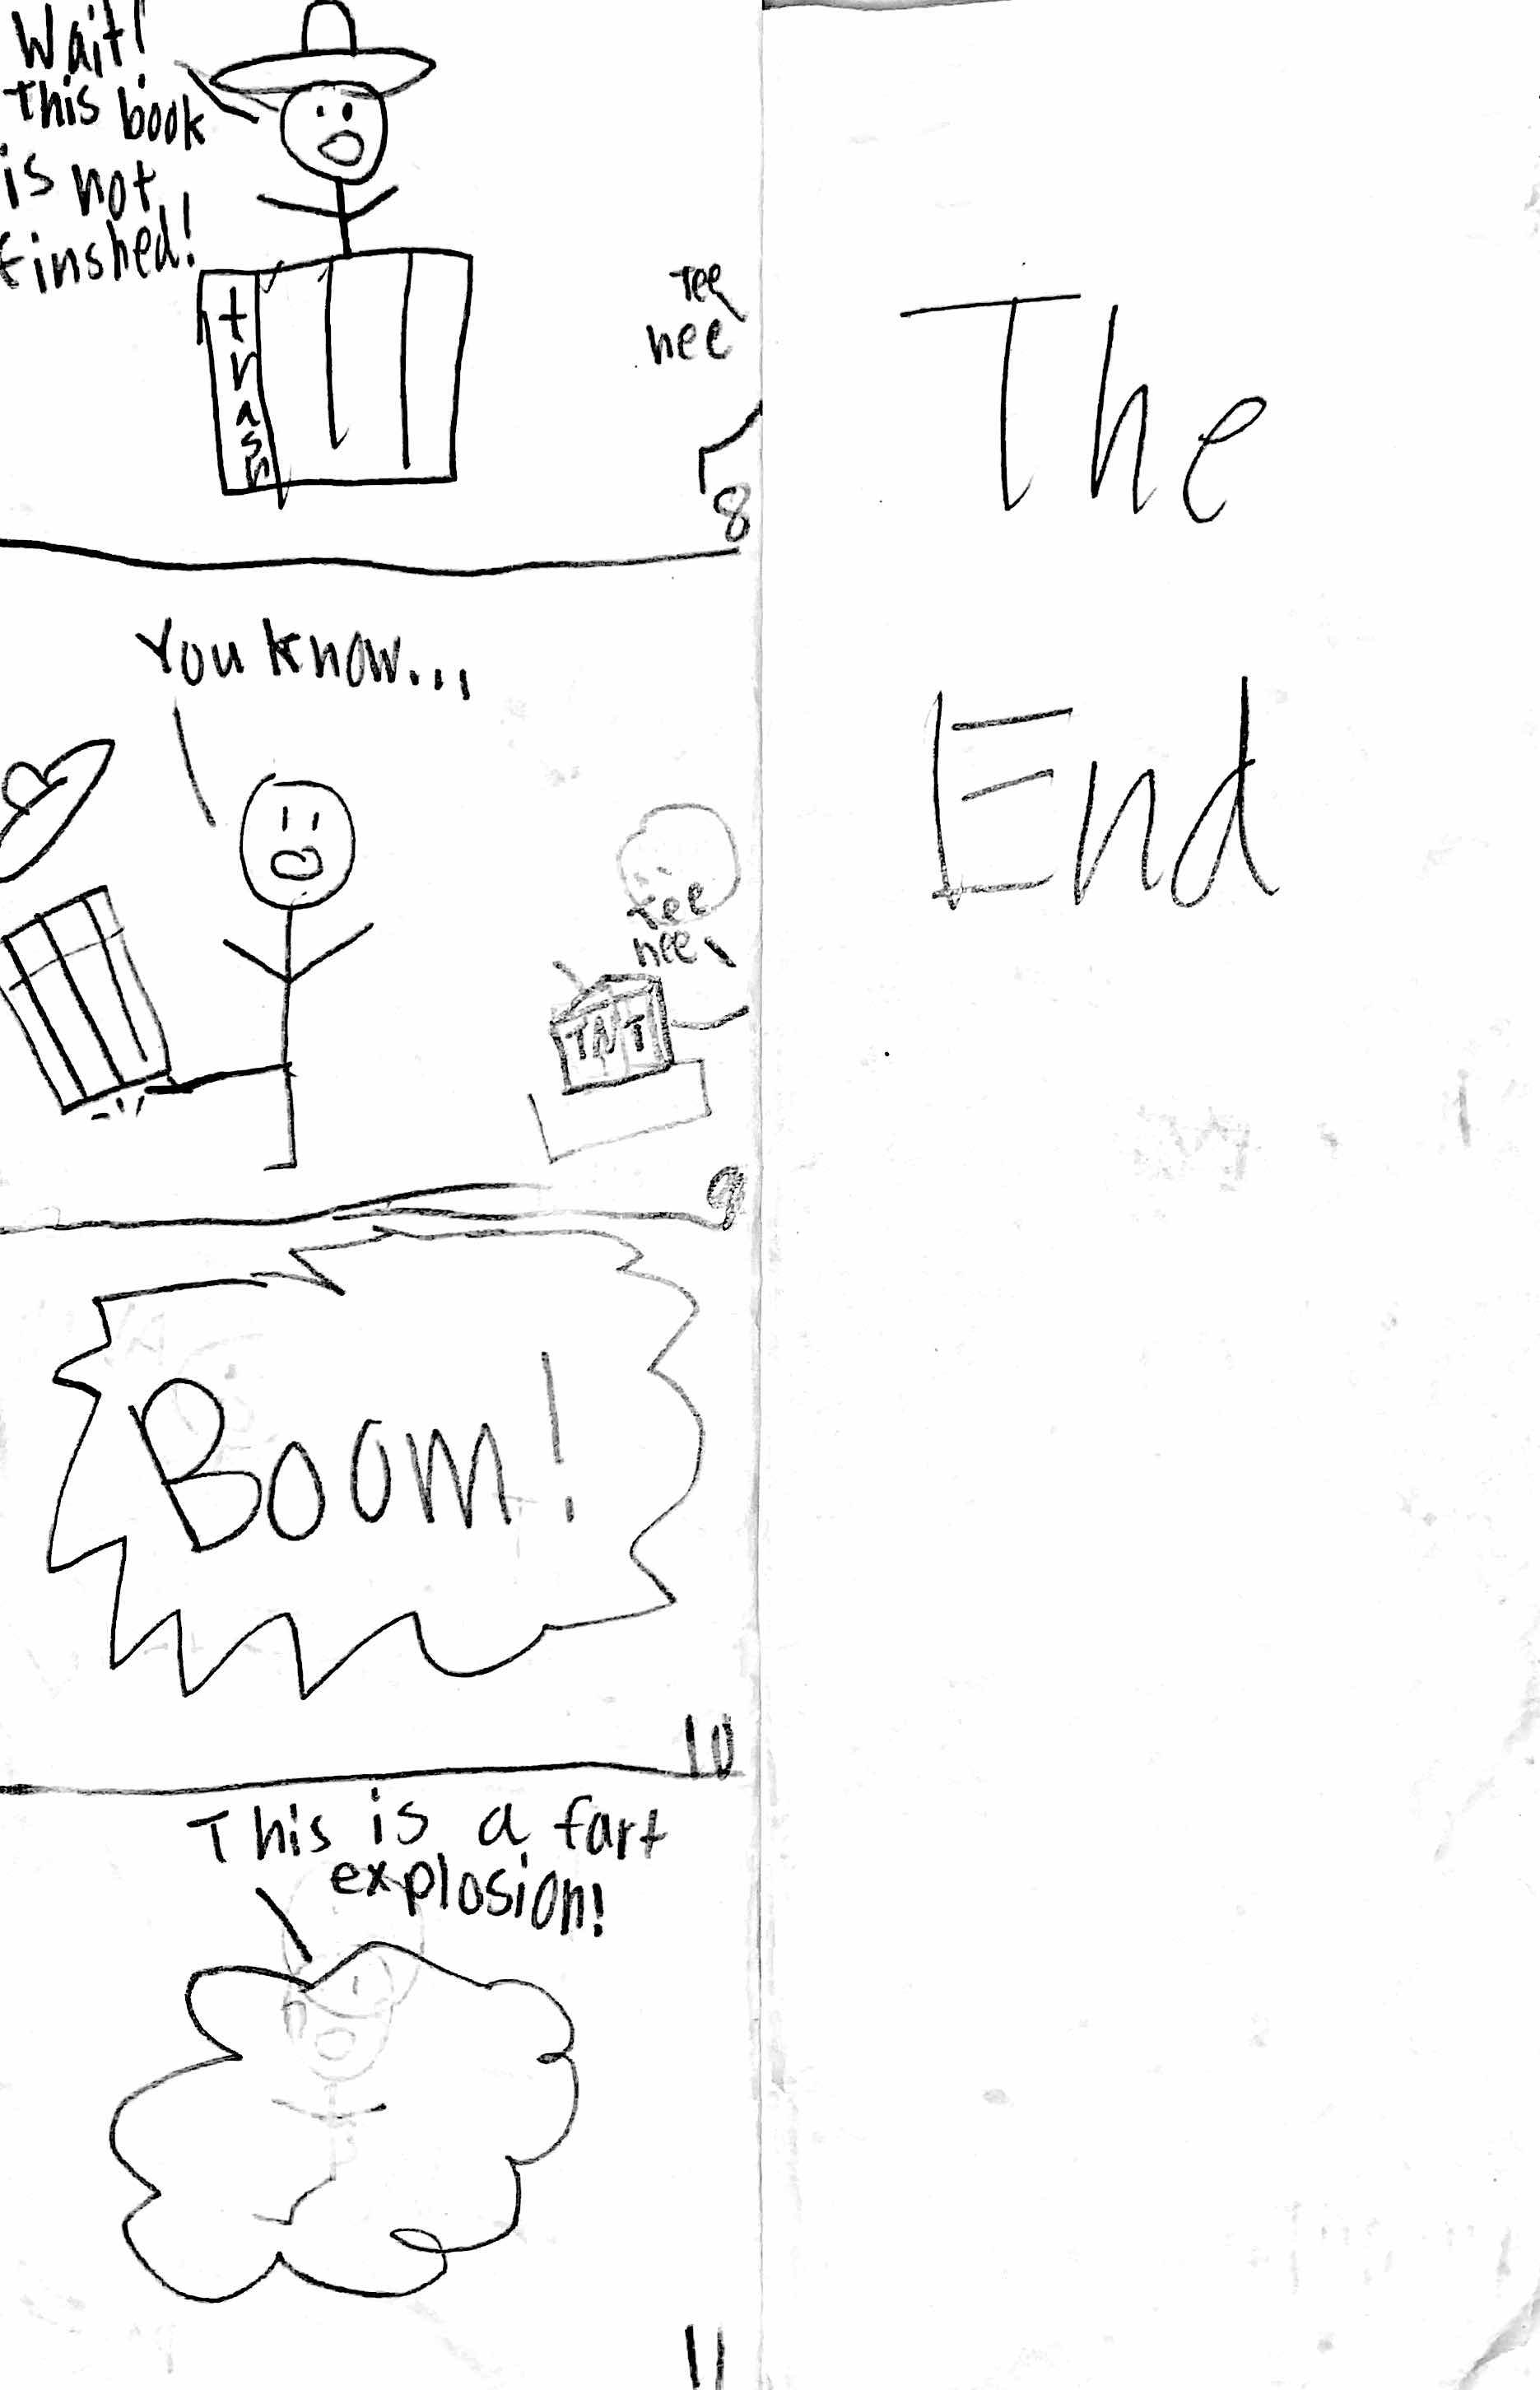 Wait!
This book
is not
finshed!
trash
Tee
hee
8
You know...
tee
hee
TNT
9
Boom!
10
This is a fart
explosion!
11
The
End